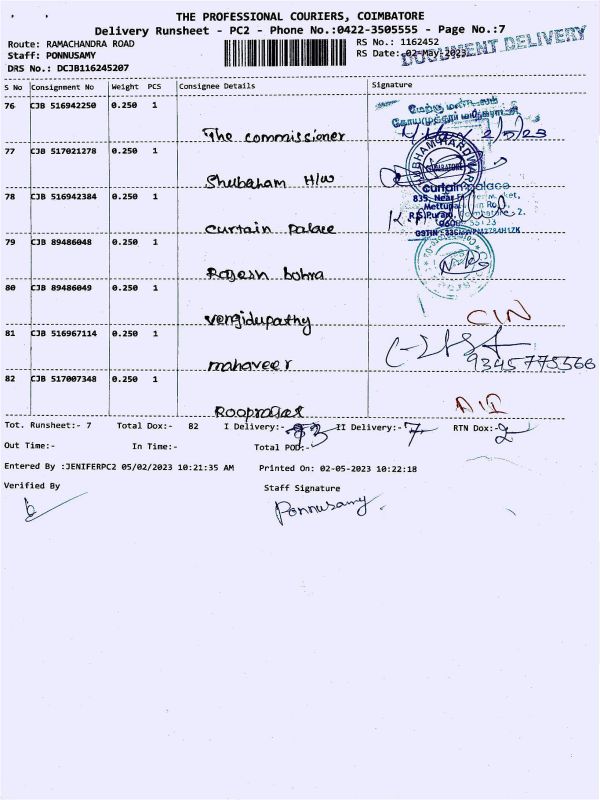 THE PROFESSIONAL COURIERS, COIMBATORE
Delivery Runsheet - PC2 - Phone No.:0422-3505555 - Page No.:7
Route: RAMACHANDRA ROAD
RS No.: 1162452
Staff: PONNUSAMY
RS Date: 02-May-2023
DOCUMENT DELIVERY
DRS No.: DCJB116245207
S No Consignment No Weight PCS Consignee Details Signature
76 CJB 516942250 0.250 1
The commissioner
மேற்கு மண்டலம்
2/5/23
77 CJB 517021278 0.250 1
Shubaham H/W
SHUBHAM HARDWARE
COIMBATORE
78 CJB 516942384 0.250 1
curtain palace
curtain palace
835, Near
Mettupa
R.S.Puram, Coimbatore - 2.
79 CJB 89486048 0.250 1
Rajesh bohra
80 CJB 89486049 0.250 1
vengidupathy
CIN
81 CJB 516967114 0.250 1
mahaveer
9345775566
82 CJB 517007348 0.250 1
Tot. Runsheet:- 7 Total Dox:- 82 I Delivery:- II Delivery:- 7 RTN Dox:- 2
Out Time:- In Time:- Total POD:-
Entered By :JENIFERPC2 05/02/2023 10:21:35 AM Printed On: 02-05-2023 10:22:18
Verified By Staff Signature
Ponnusamy